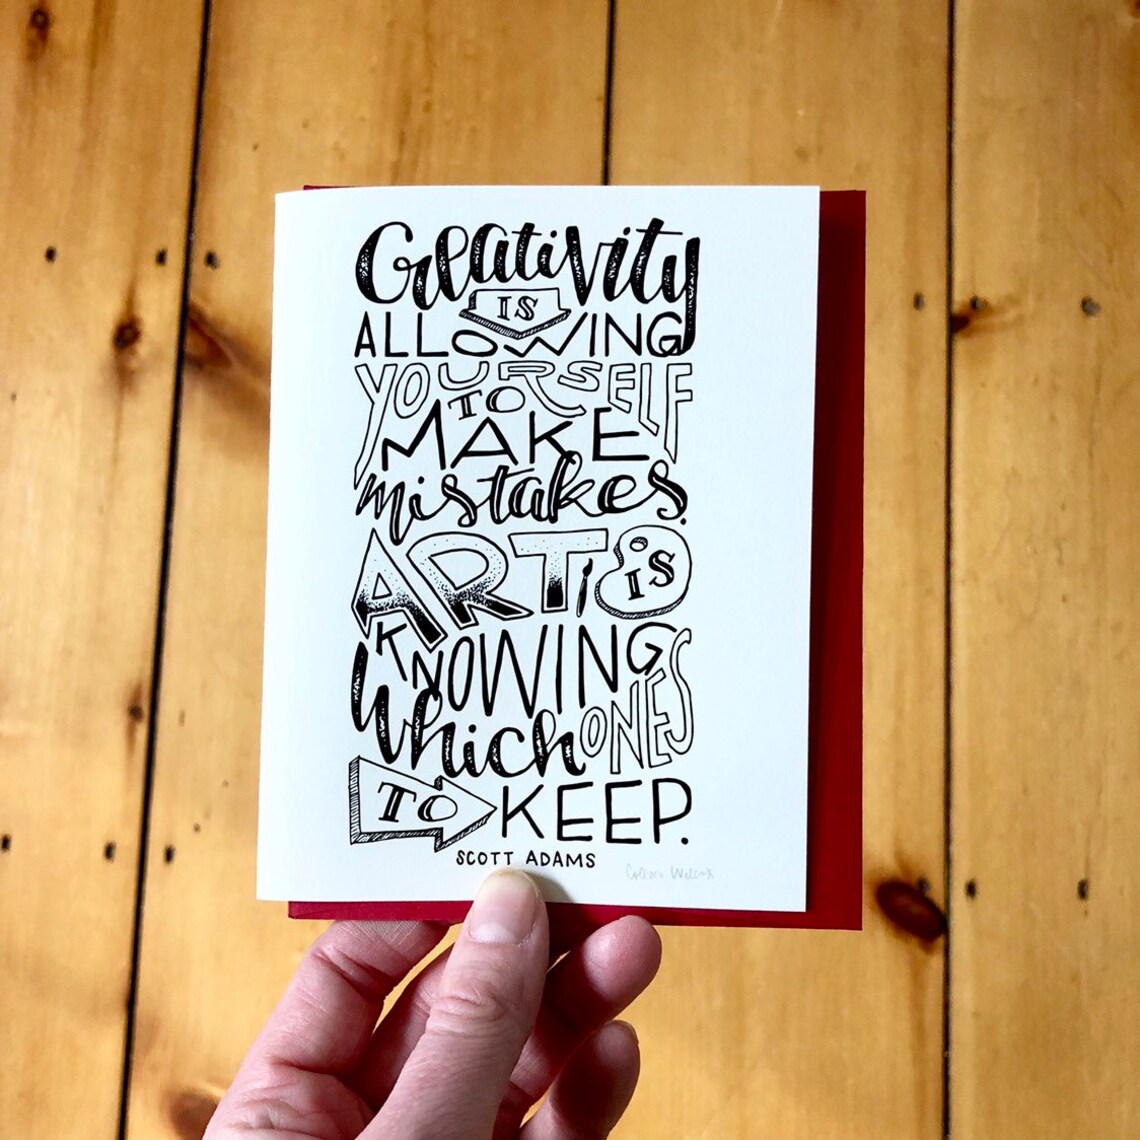 Creativity
IS
ALLOWING
YOURSELF
TO
MAKE
mistakes.
ART IS
KNOWING
Which ONES
TO KEEP.
SCOTT ADAMS